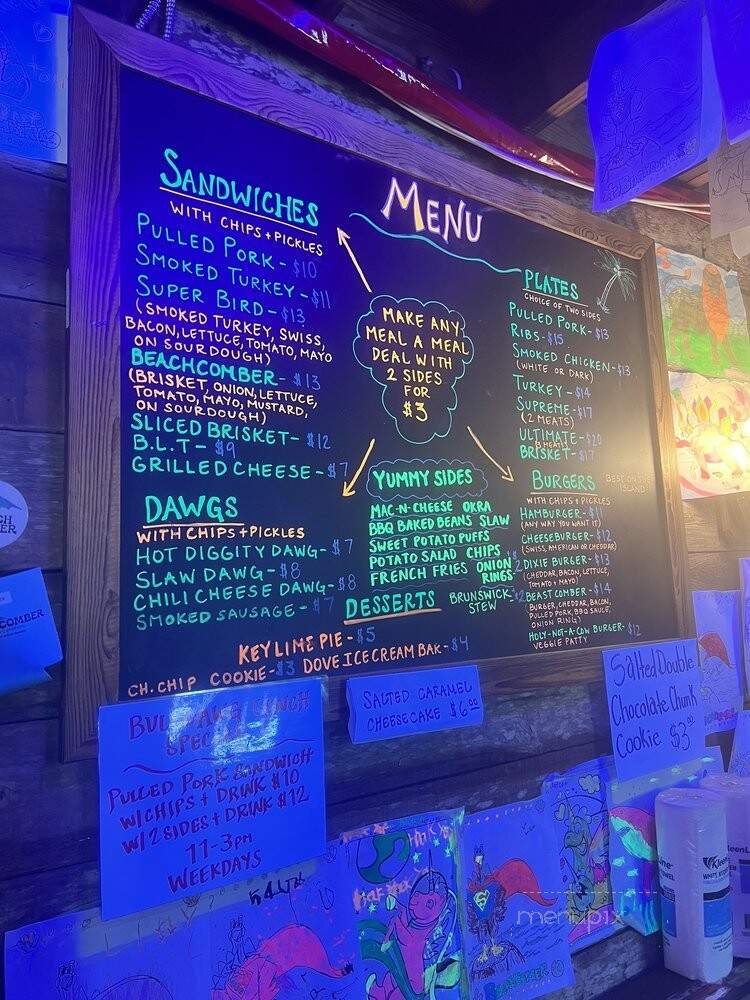 MENU
SANDWICHES
WITH CHIPS + PICKLES
PULLED PORK - $10
SMOKED TURKEY - $11
SUPER BIRD - $13
(SMOKED TURKEY, SWISS,
BACON, LETTUCE, TOMATO, MAYO
ON SOURDOUGH)
BEACHCOMBER - $13
(BRISKET, ONION, LETTUCE,
TOMATO, MAYO, MUSTARD,
ON SOURDOUGH)
SLICED BRISKET - $12
B.L.T - $9
GRILLED CHEESE - $7
DAWGS
WITH CHIPS + PICKLES
HOT DIGGITY DAWG - $7
SLAW DAWG - $8
CHILI CHEESE DAWG - $8
SMOKED SAUSAGE - $7
MAKE ANY
MEAL A MEAL
DEAL WITH
2 SIDES
FOR
$3
YUMMY SIDES
MAC-N-CHEESE OKRA
BBQ BAKED BEANS SLAW
SWEET POTATO PUFFS
POTATO SALAD CHIPS
FRENCH FRIES ONION
RINGS
BRUNSWICK
STEW
DESSERTS
KEY LIME PIE - $5
CH. CHIP COOKIE - $3 DOVE ICE CREAM BAR - $4
PLATES
CHOICE OF TWO SIDES
PULLED PORK - $13
RIBS - $15
SMOKED CHICKEN - $13
(WHITE OR DARK)
TURKEY - $14
SUPREME - $17
(2 MEATS)
ULTIMATE - $20
(3 MEATS)
BRISKET - $17
BURGERS BEST ON THE
ISLAND!
WITH CHIPS + PICKLES
HAMBURGER - $11
(ANY WAY YOU WANT IT)
CHEESEBURGER - $12
(SWISS, AMERICAN OR CHEDDAR)
DIXIE BURGER - $13
(CHEDDAR, BACON, LETTUCE,
TOMATO + MAYO)
BEAST COMBER - $14
(BURGER, CHEDDAR, BACON,
PULLED PORK, BBQ SAUCE,
ONION RING)
HOLY-NOT-A-COW BURGER - $12
VEGGIE PATTY
SALTED CARAMEL
CHEESECAKE $6.00
Salted Double
Chocolate Chunk
Cookie $3.00
BULLDAWG LUNCH
SPECIAL
PULLED PORK SANDWICH
W/CHIPS + DRINK $10
W/2 SIDES + DRINK $12
11-3PM
WEEKDAYS
menupix